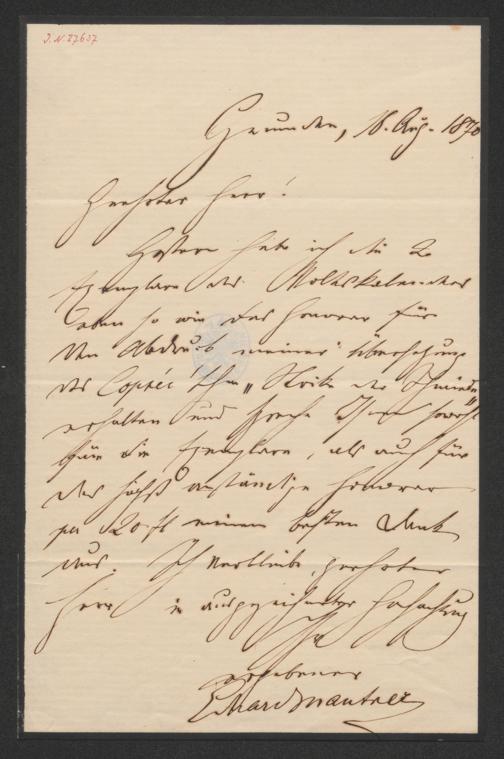 J.N. 27637
Gmunden, 18. Aug. 1870
Geehrter Herr!
Gestern habe ich die 2
Exemplare des Volkskalenders
eben so wie das Honorar für
den Abdruck meiner Übersetzung
des Coppée'schen „Strike der Schmiede"
erhalten und spreche Ihnen sowohl
für die Exemplare, als auch für
das höchst anständige Honorar
per 20 fl meinen besten Dank
aus. Ich verbleibe, geehrter
Herr in ausgezeichneter Hochachtung
Ihr
ergebener
E Mautner